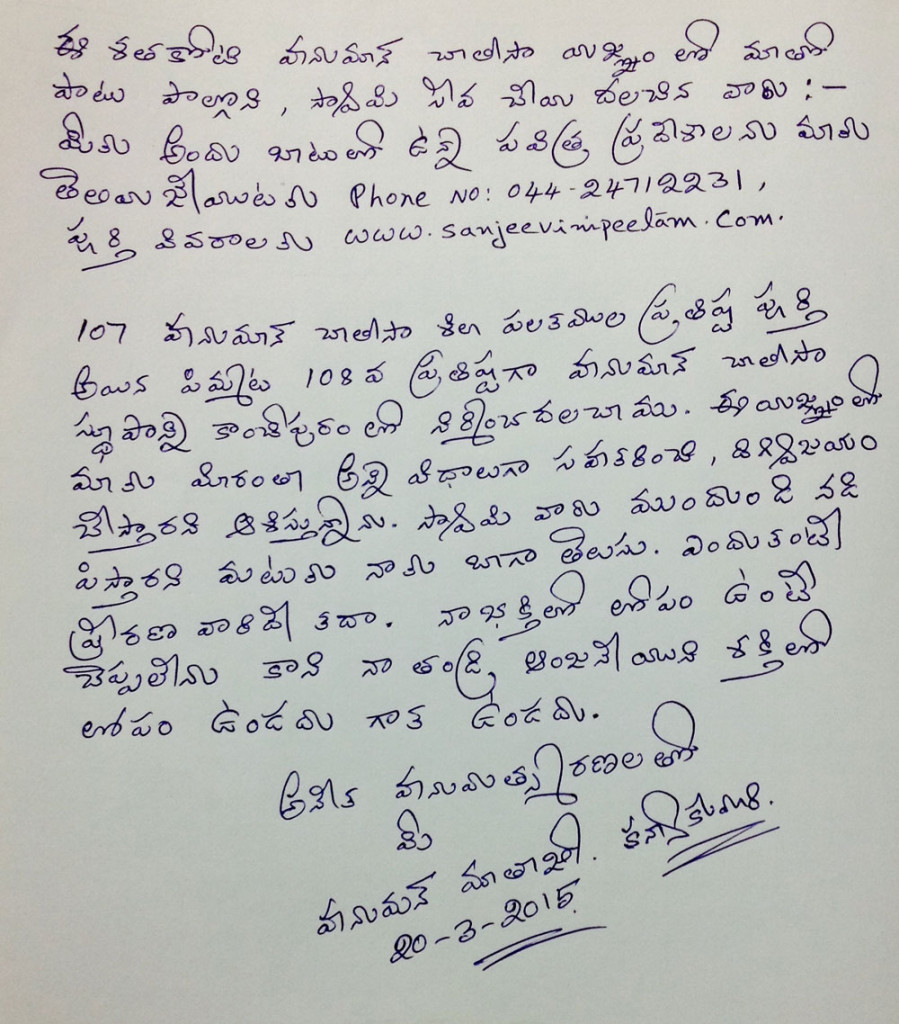 ఈ శతకోటి హనుమాన్ చాలీసా యజ్ఞం లో మాతో
పాటు పాల్గొని , స్వామి సేవ చేయ దలచిన వారు : –
మీకు అందు బాటులో ఉన్న పవిత్ర ప్రదేశాలను మాకు
తెలియ జేయుటకు Phone No: 044-24712231,
పూర్తి వివరాలకు www.sanjeevinipeetam.com.
107 హనుమాన్ చాలీసా శిలా ఫలకముల ప్రతిష్ట పూర్తి
అయిన పిమ్మట 108 వ ప్రతిష్టగా హనుమాన్ చాలీసా
స్థూపాన్ని కాంచీపురం లో నిర్మించ దలచాము. ఈ యజ్ఞంలో
మాకు మీరంతా అన్ని విధాలుగా సహకరించి , దిగ్విజయం
చేస్తారని ఆశిస్తున్నాను. స్వామి వారు ముందుండి నడి
పిస్తారని మటుకు నాకు బాగా తెలుసు. ఎందుకంటే
ప్రేరణ వారిదే కదా. నా భక్తిలో లోపం ఉంటే
చెప్పలేను కాని నా తండ్రి ఆంజనేయుని శక్తిలో
లోపం ఉండదు గాక ఉండదు.
అనేక హనుమత్స్మరణలతో
మీ
హనుమన్ మాతాజీ.
20-3-2015.